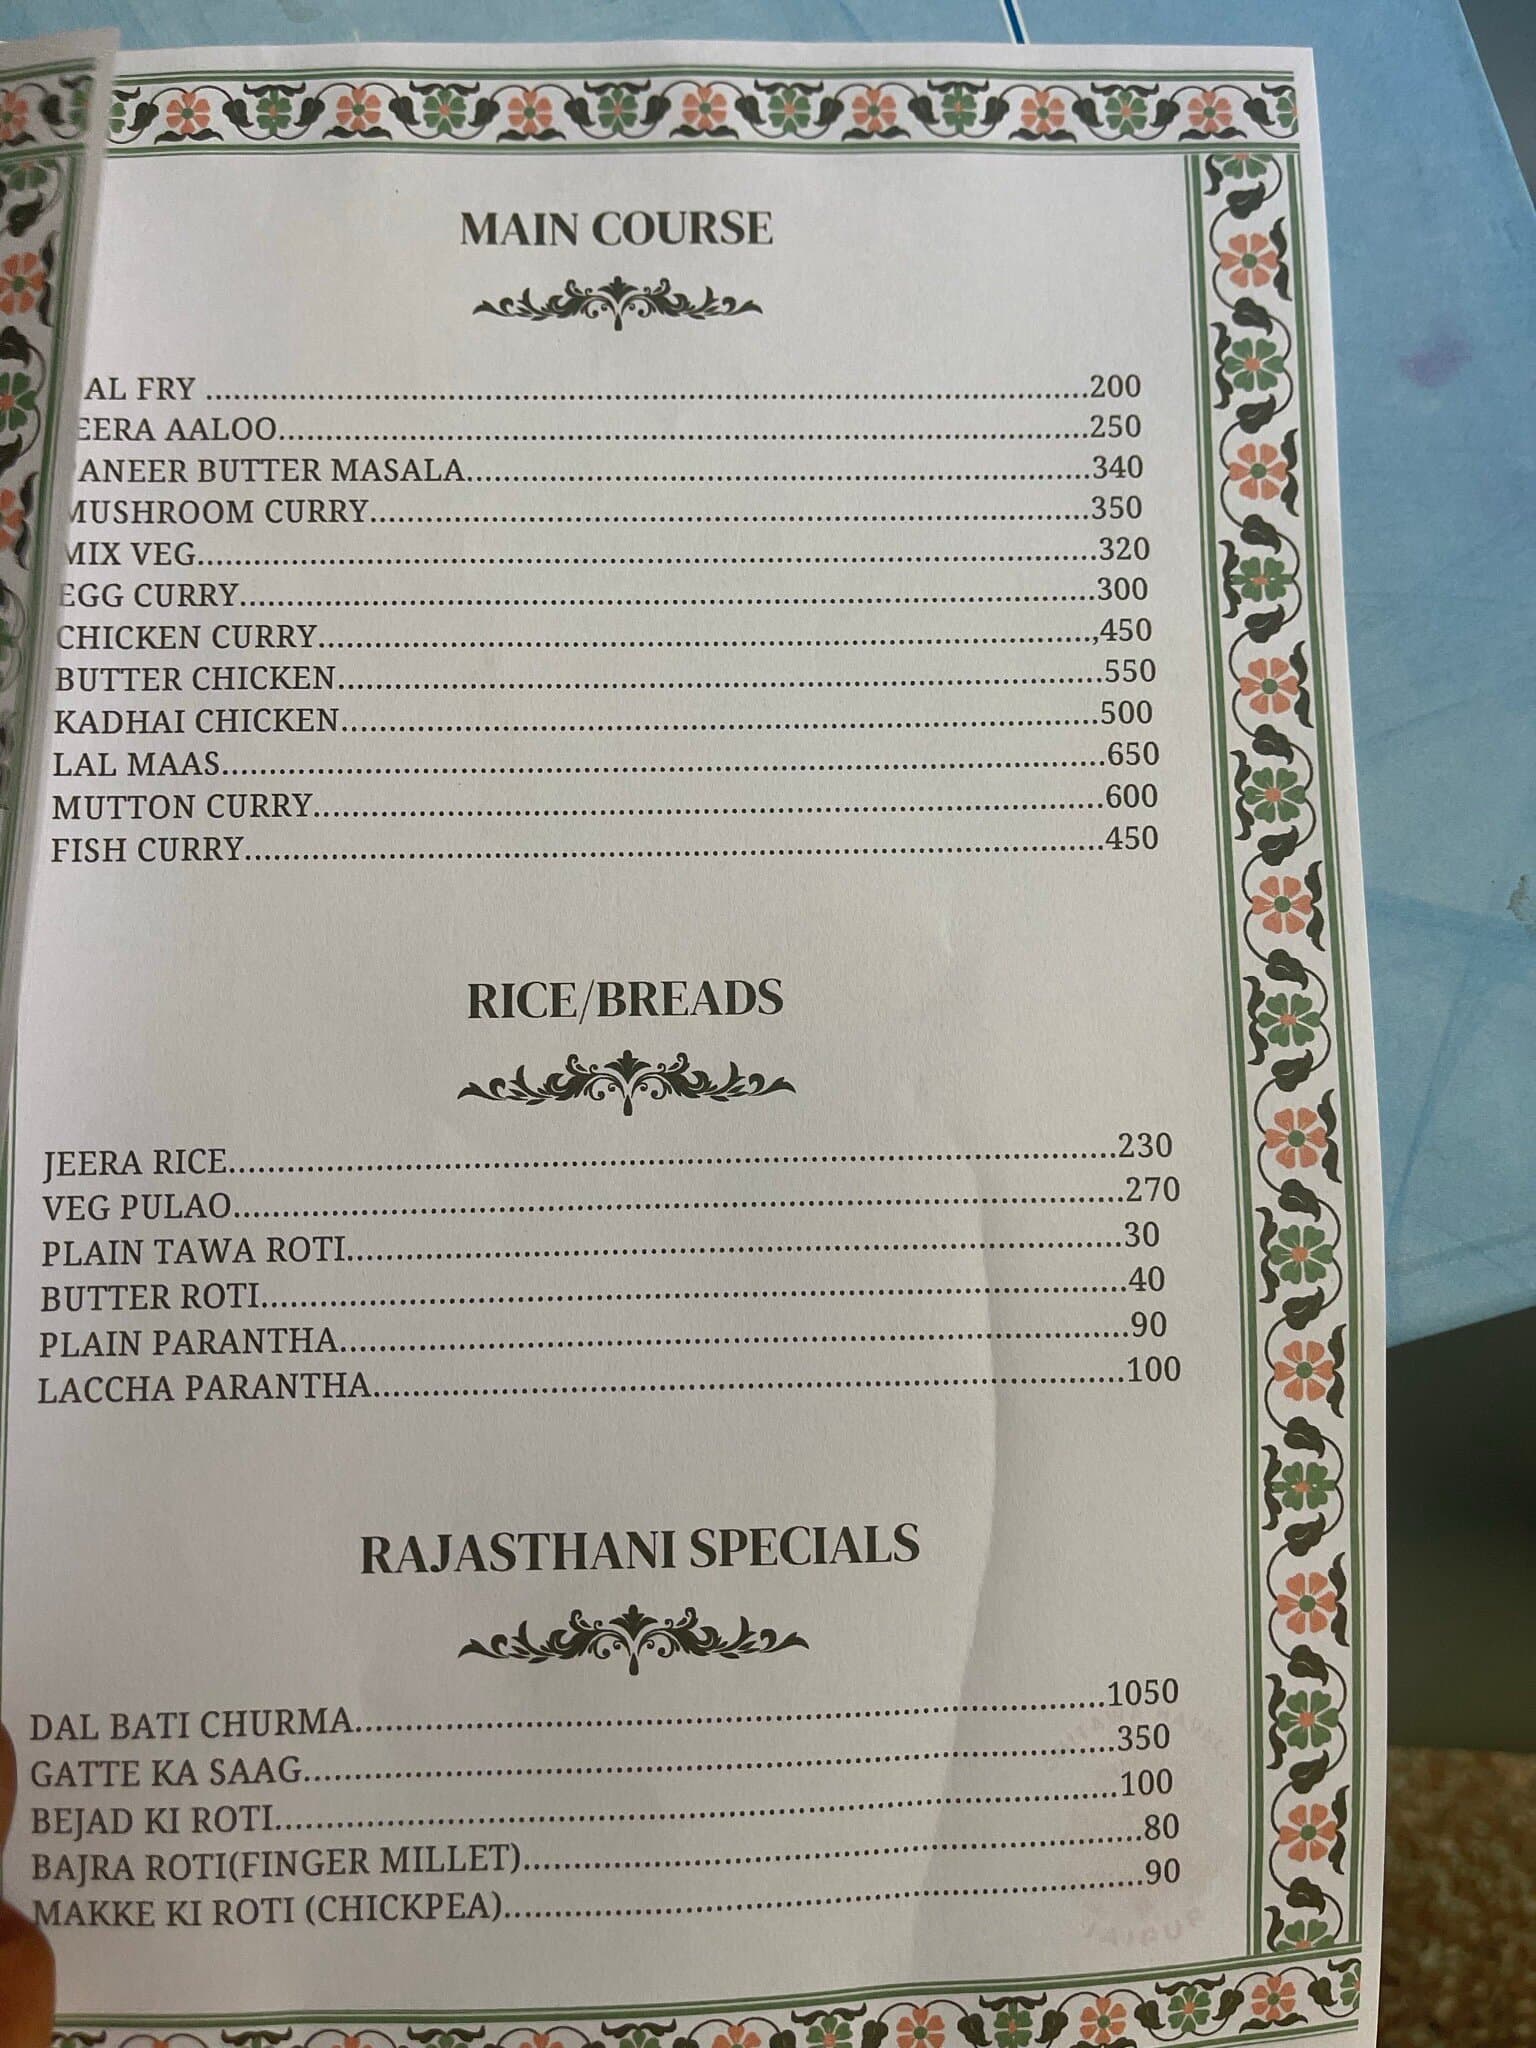 MAIN COURSE
AL FRY ........................200
EERA AALOO........................250
ANEER BUTTER MASALA........................340
MUSHROOM CURRY........................350
MIX VEG........................320
EGG CURRY........................300
CHICKEN CURRY........................,450
BUTTER CHICKEN........................550
KADHAI CHICKEN........................500
LAL MAAS........................650
MUTTON CURRY........................600
FISH CURRY........................450
RICE/BREADS
JEERA RICE........................230
VEG PULAO........................270
PLAIN TAWA ROTI........................30
BUTTER ROTI........................40
PLAIN PARANTHA........................90
LACCHA PARANTHA........................100
RAJASTHANI SPECIALS
DAL BATI CHURMA........................1050
GATTE KA SAAG........................350
BEJAD KI ROTI........................100
BAJRA ROTI(FINGER MILLET)........................80
MAKKE KI ROTI (CHICKPEA)........................90